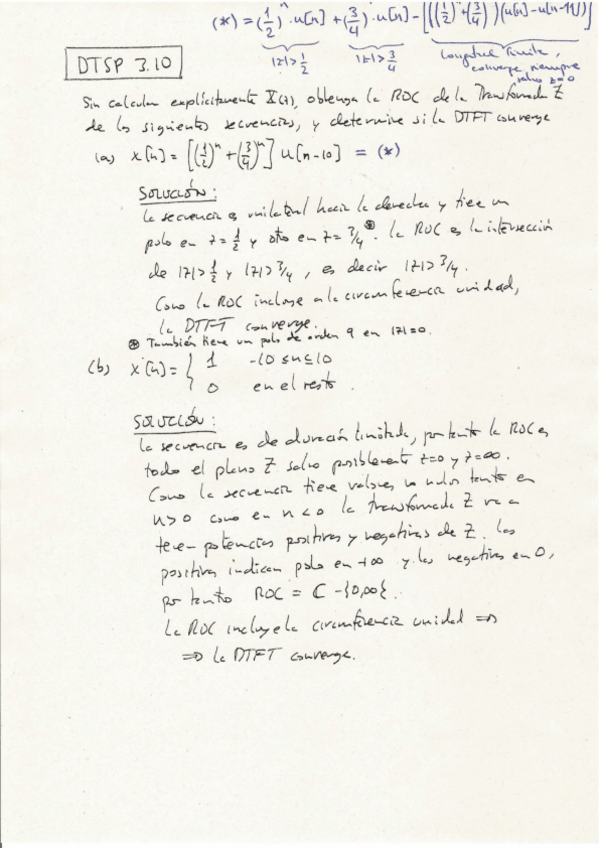 (*) = (1/2)^n · u[n] + (3/4)^n · u[n] - [((1/2)^n + (3/4)^n)(u[n] - u[n-11])]
|z| > 1/2 |z| > 3/4 Longitud finita,
converge siempre
salvo z=0
DTSP 3.10
Sin calcular explícitamente X(z), obtenga la ROC de la Transformada Z
de las siguientes secuencias, y determine si la DTFT converge
(a) x[n] = [(1/2)^n + (3/4)^n] u[n-10] = (*)
SOLUCIÓN:
La secuencia es unilateral hacia la derecha y tiene un
polo en z = 1/2 y otro en z = 3/4 ⊛. La ROC es la intersección
de |z| > 1/2 y |z| > 3/4, es decir |z| > 3/4.
Como la ROC incluye a la circunferencia unidad,
la DTFT converge.
⊛ También tiene un polo de orden 9 en |z|=0.
(b) x[n] = { 1 -10 ≤ n ≤ 10
0 en el resto.
SOLUCIÓN:
La secuencia es de duración limitada, por tanto la ROC es
todo el plano Z salvo posiblemente z=0 y z=∞.
Como la secuencia tiene valores no nulos tanto en
n>0 como en n<0 la transformada Z va a
tener potencias positivas y negativas de Z. Las
positivas indican polo en +∞ y las negativas en 0,
por tanto ROC = C - {0,∞}.
La ROC incluye la circunferencia unidad ⇒
⇒ la DTFT converge.